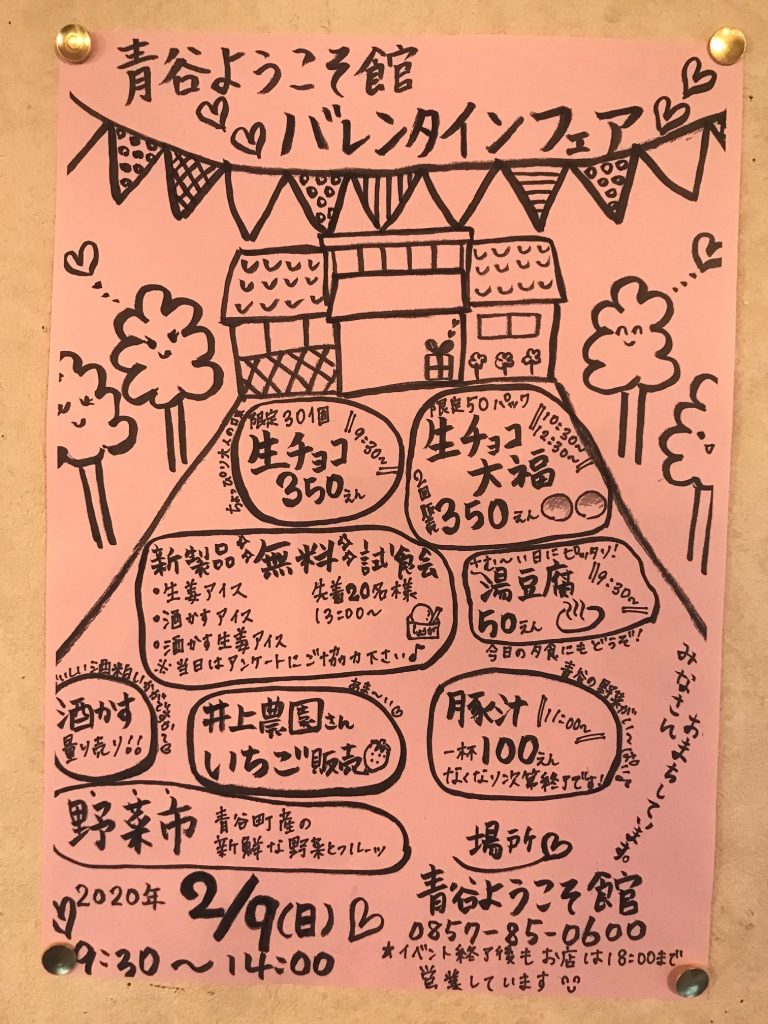 青谷ようこそ館
バレンタインフェア
限定30個
生チョコ
350えん
9:30〜
ちょっぴり大人の
限定50パック
生チョコ
大福
10:30〜
12:30〜
2回販売
350えん
新製品 無料 試食会
・生姜アイス
・酒かすアイス
・酒かす生姜アイス
先着20名様
13:00〜
※当日はアンケートにご協力下さい♪
さむ〜い日にピッタリ!
湯豆腐
9:30〜
50えん
今日の夕食にもどうぞ!
おいしい酒粕いかがですか
酒かす
量り売り!!
あま〜い♡
井上農園さん
いちご販売
青谷の野菜がいっぱい
豚汁
11:00〜
一杯100えん
なくなり次第終了です!
みなさん おまちしています。
野菜市
青谷町産の
新鮮な野菜とフルーツ
2020年 2/9(日)
9:30〜14:00
場所
青谷ようこそ館
0857-85-0600
★イベント終了後もお店は18:00まで
営業しています